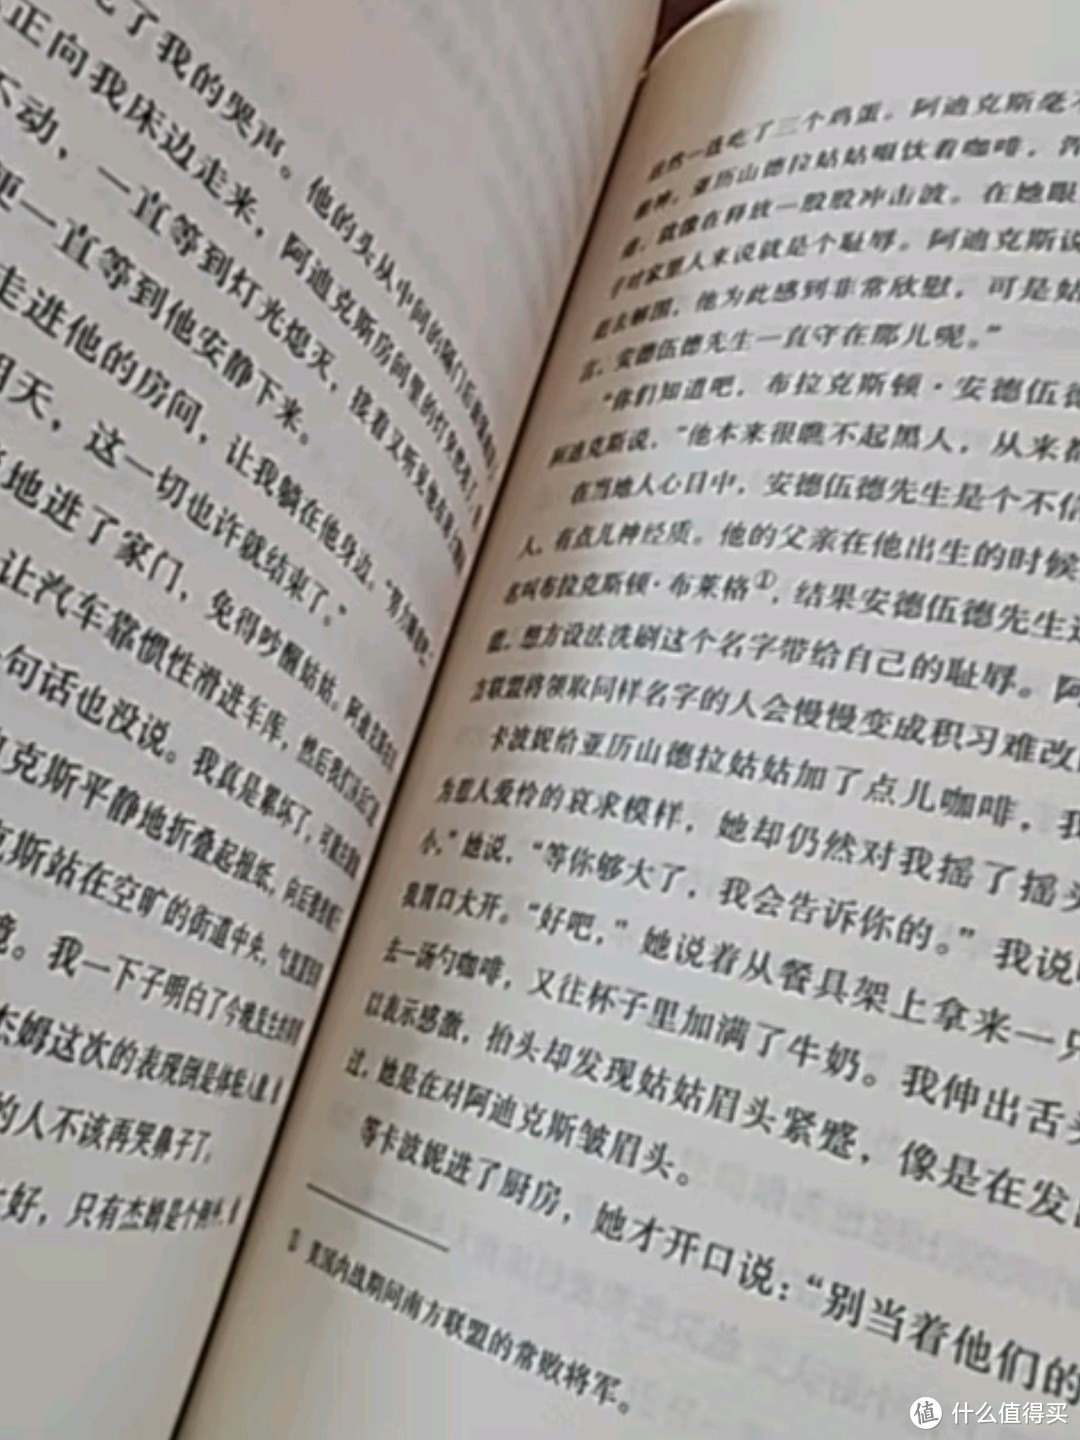 了我的哭声。他的头从中间的隔门后
正向我床边走来，阿迪克斯房间里的灯
不动，一直等到灯光熄灭，接着又听见他
便一直等到他安静下来。
走进他的房间，让我躺在他身边。“努力
明天，这一切也许就结束了。”
地进了家门，免得吵醒姑姑。阿迪克斯
让汽车靠惯性滑进车库，然后我们
句话也没说。我真是累坏了，可
克斯平静地折叠起报纸，向后
克斯站在空旷的街道中央，
竟。我一下子明白了今晚发生的
杰姆这次的表现倒是
的人不该再哭鼻子了，
好，只有杰姆是个例外。
然一连吃了三个鸡蛋。阿迪克斯毫不
神，亚历山德拉姑姑啜饮着咖啡，浑
着，就像在释放一股股冲击波。在她眼
子对家里人来说就是个耻辱。阿迪克斯说
赶去解围，他为此感到非常欣慰，可是姑
言，安德伍德先生一直守在那儿呢。”
“你们知道吧，布拉克斯顿·安德伍德
阿迪克斯说，“他本来很瞧不起黑人，从来都
在当地人心目中，安德伍德先生是个不信
人，有点儿神经质。他的父亲在他出生的时候
名叫布拉克斯顿·布莱格①，结果安德伍德先生
，想方设法洗刷这个名字带给自己的耻辱。阿
方联盟将领取同样名字的人会慢慢变成积习难改
卡波妮给亚历山德拉姑姑加了点儿咖啡，我
为惹人爱怜的哀求模样，她却仍然对我摇了摇头
小，”她说，“等你够大了，我会告诉你的。”我说
我胃口大开。“好吧，”她说着从餐具架上拿来一只
去一汤勺咖啡，又往杯子里加满了牛奶。我伸出舌头
以表示感激，抬头却发现姑姑眉头紧蹙，像是在发
过，她是在对阿迪克斯皱眉头。
等卡波妮进了厨房，她才开口说：“别当着他们的
① 美国内战期间南方联盟的常败将军。
值 什么值得买